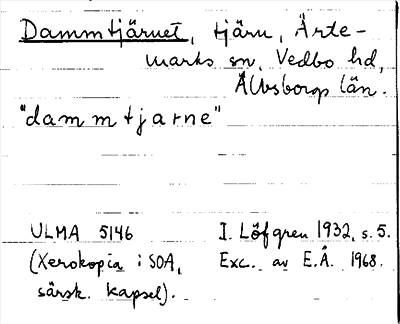 Dammtjärnet, tjärn, Ärte-
marks sn, Vedbo hd,
Älvsborgs län.
"dammtjarne"
ULMA 5146 I. Löfgren 1932, s. 5.
(Xerokopia i SOA, Exc. av E.Å. 1968.
särsk. kapsel).